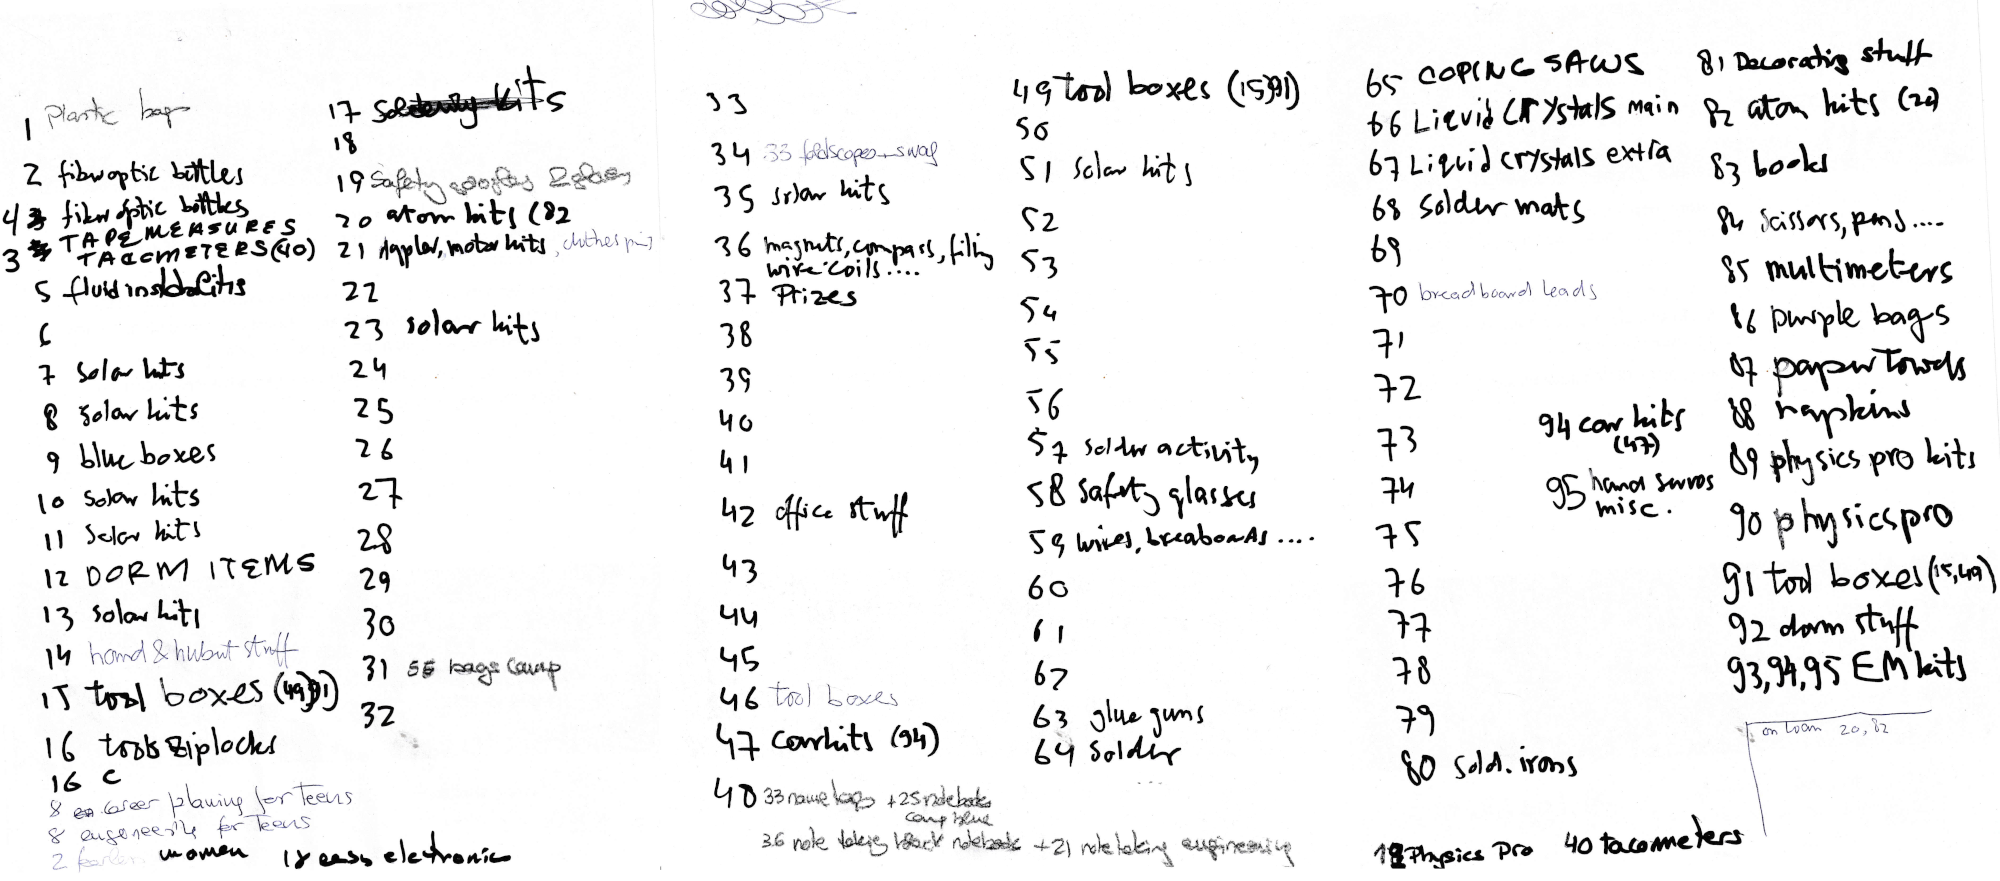 1 Plastic bags
2 fiber optic bottles
4 fiber optic bottles
3 TAPE MEASURES
TACOMETERS (40)
5 fluid
6
7 Solar kits
8 Solar kits
9 blue boxes
10 Solar kits
11 Solar kits
12 DORM ITEMS
13 Solar kits
14 hand & stuff
15 tool boxes (49,91)
16 tools ziplocks
16 C
8 career planing for Teens
8 engineering for Teens
2 women
18 easy electronic
17 Soldering kits
18
19 Safety googles
20 atom kits (82
21 motor kits, clothes pins
22
23 solar kits
24
25
26
27
28
29
30
31 55 bags Camp
32
33
34 33 foldscopes swag
35 solar kits
36 magnets, compass, filing
wire coils....
37 Prizes
38
39
40
41
42 office stuff
43
44
45
46 tool boxes
47 car kits (94)
48 33 name tags +25 notebooks
camp blue
36 note taking black notebooks +21 note taking engineering
49 tool boxes (15,91)
50
51 solar kits
52
53
54
55
56
57 solder activity
58 Safety glasses
59 wires, breaboards ....
60
61
62
63 glue guns
64 Solder
65 COPING SAWS
66 Liquid CRYstals main
67 Liquid crystals extra
68 Solder mats
69
70 breadboard leads
71
72
73
74
75
76
77
78
79
80 sold. irons
Physics Pro
40 tacometers
94 car kits
(47)
95 hand
misc.
81 Decorating stuff
82 atom kits (20)
83 books
84 Scissors, pens....
85 multimeters
86 purple bags
87 paper Towels
88 napkins
89 physics pro kits
90 physics pro
91 tool boxes (15,49)
92 dorm stuff
93,94,95 EM kits
on loan 20, 82